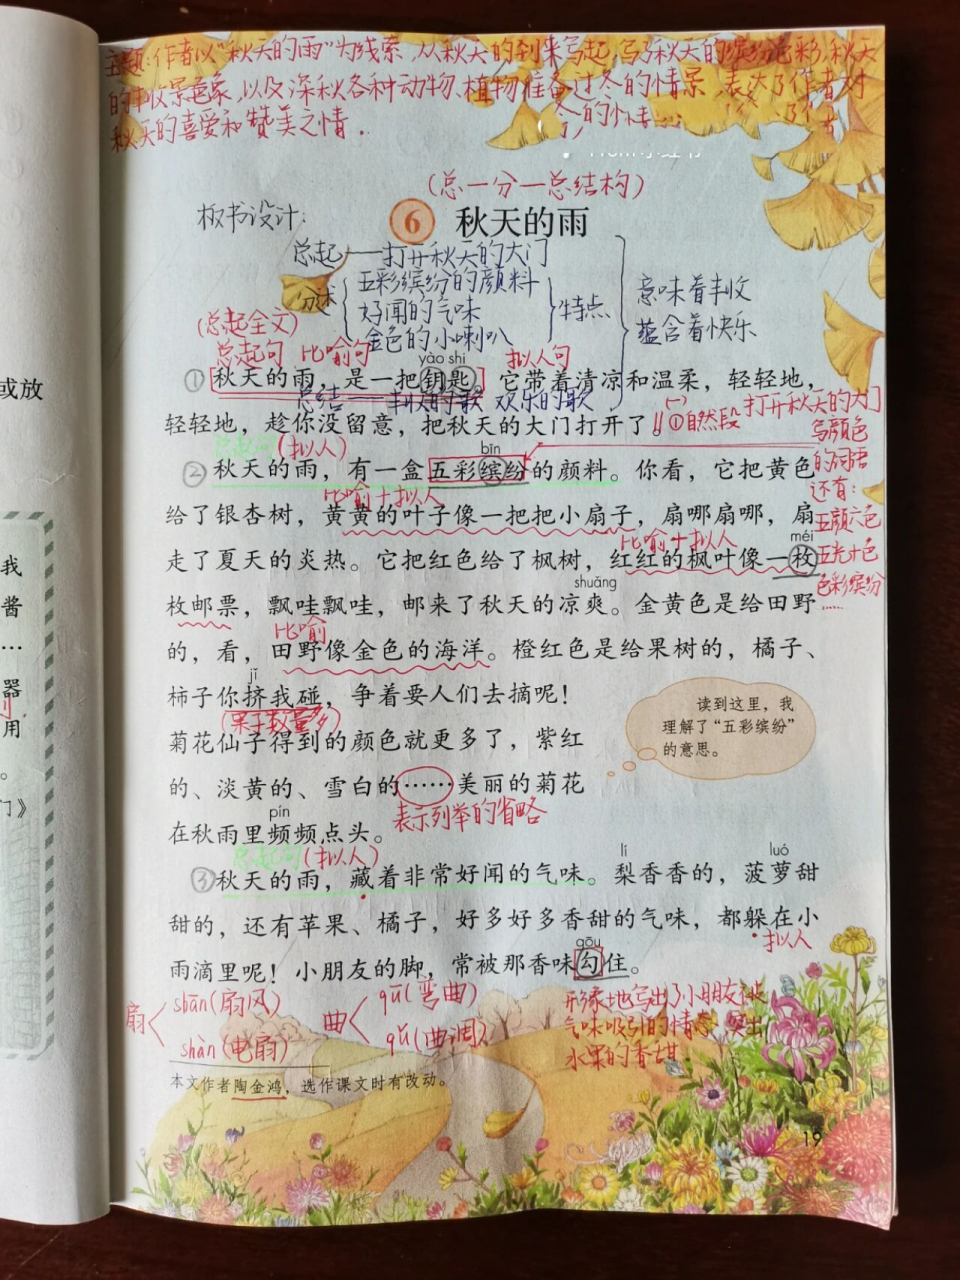 主题:作者以"秋天的雨"为线索,从秋天的到来写起,写了秋天的缤纷色彩,秋天
的丰收景象,以及深秋各种动物、植物准备过冬的情景,表达了作者对
秋天的喜爱和赞美之情.
(总一分一总结构)
板书设计:
6 秋天的雨
总起——打开秋天的大门
分述
五彩缤纷的颜料
好闻的气味
金色的小喇叭
特点
意味着丰收
蕴含着快乐
(总起全文)
总起句 比喻句 拟人句
yào shi
①秋天的雨,是一把钥匙。它带着清凉和温柔,轻轻地,
总结——丰收的歌 欢乐的歌
轻轻地,趁你没留意,把秋天的大门打开了。
(一)①自然段 打开秋天的大门
总起句(拟人)
bīn
②秋天的雨,有一盒五彩缤纷的颜料。你看,它把黄色
写颜色
的词语
还有:
五颜六色
五光十色
色彩缤纷
……
比喻+拟人
给了银杏树,黄黄的叶子像一把把小扇子,扇哪扇哪,扇
比喻+拟人
méi
走了夏天的炎热。它把红色给了枫树,红红的枫叶像一枚
shuāng
枚邮票,飘哇飘哇,邮来了秋天的凉爽。金黄色是给田野
比喻
的,看,田野像金色的海洋。橙红色是给果树的,橘子、
jǐ
柿子你挤我碰,争着要人们去摘呢!
(果子数量多)
菊花仙子得到的颜色就更多了,紫红
的、淡黄的、雪白的……美丽的菊花
表示列举的省略
pín
在秋雨里频频点头。
读到这里,我
理解了"五彩缤纷"
的意思。
总起句(拟人)
lí
luó
③秋天的雨,藏着非常好闻的气味。梨香香的,菠萝甜
甜的,还有苹果、橘子,好多好多香甜的气味,都躲在小
拟人
gōu
雨滴里呢!小朋友的脚,常被那香味勾住。
扇
shān(扇风)
shàn(电扇)
曲
qū(弯曲)
qǔ(曲调)
形象地写出了小朋友被
气味吸引的情景,突出
水果的香甜.
本文作者陶金鸿,选作课文时有改动。
19
或放
我
酱
…
器
用
。
门》